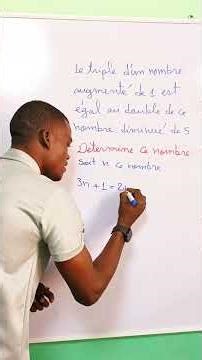 Le triple d'un nombre
augmenté de 1 est
égal au double de ce
nombre diminué de 5
Détermine ce nombre
soit n ce nombre
3n + 1 = 2n